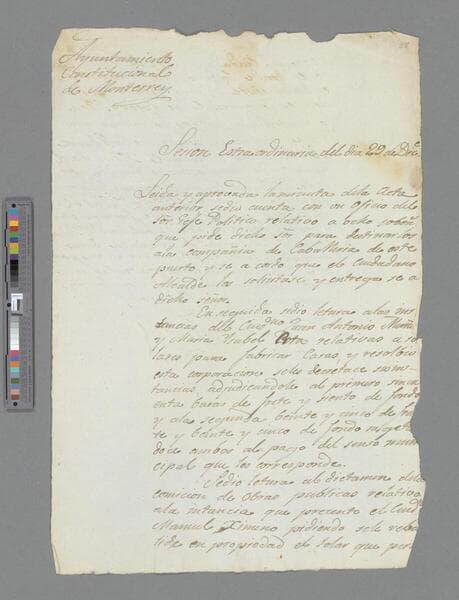 Ayuntamiento
Constitucional
de Monterrey.
Secion Extraordinaria del dia 29 de Dre.
Leida y aprovada la minuta dela Acta
anterior sedio cuenta con un Oficio del
Sor Gefe Politico relativo a ocho
que pide dicho Sor para destinarlos
ala compañia de Caballeria de este
punto, y se a cordo que el Ciudadano
Alcalde los solicitase y entregase a
dicho señor.
En seguida sedio letura alas ins
tancias del Ciudno Juan Antonio Muño
y Maria Ysabel relativas a so
lares para fabricar Casas, y resolvio
esta corporacion seles decretace sus ins
tancias, adjudicandole al primero sincu
enta baras de frete y siento de fondo
y ala segunda beinte y cinco de fre
te y beinte y cinco de fondo sugeta
dose ambos al pago del senso muni
cipal que les corresponde.
Sedio letura al dictamen dela
comicion de Obras publicas relativo
ala intancia que presento el Ciud
Manuel Ximeno pidiendo sele reba
lide en propiedad el Solar que